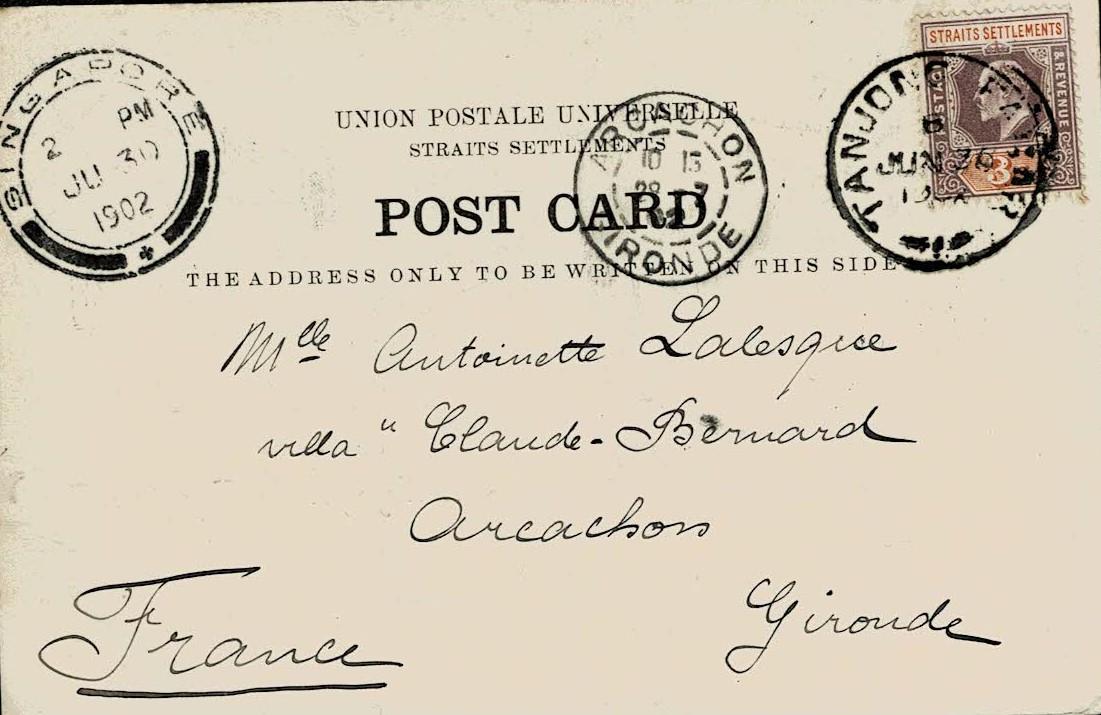 STRAITS SETTLEMENTS
POSTAGE & REVENUE
3
SINGAPORE
2 PM
JU 30
1902
TANJONG PAGAR
JUN 30
UNION POSTALE UNIVERSELLE
STRAITS SETTLEMENTS
POST CARD
THE ADDRESS ONLY TO BE WRITTEN ON THIS SIDE
ARCACHON
10 15
GIRONDE
Mlle Antoinette Lalesque
villa " Claude-Bernard
Arcachon
Gironde
France